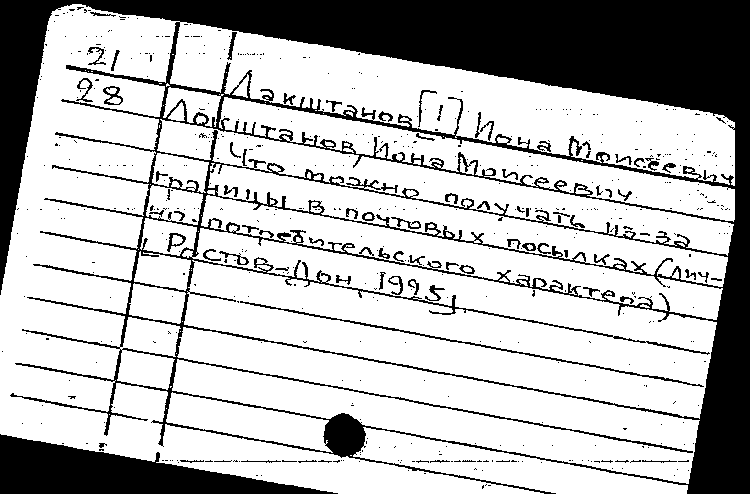 21
28
Лакштанов [!] Иона Моисеевич
Локштанов, Иона Моисеевич
Что можно получать из-за
границы в почтовых посылках (лич-
но-потребительского характера)
[Ростов-Дон, 1925]